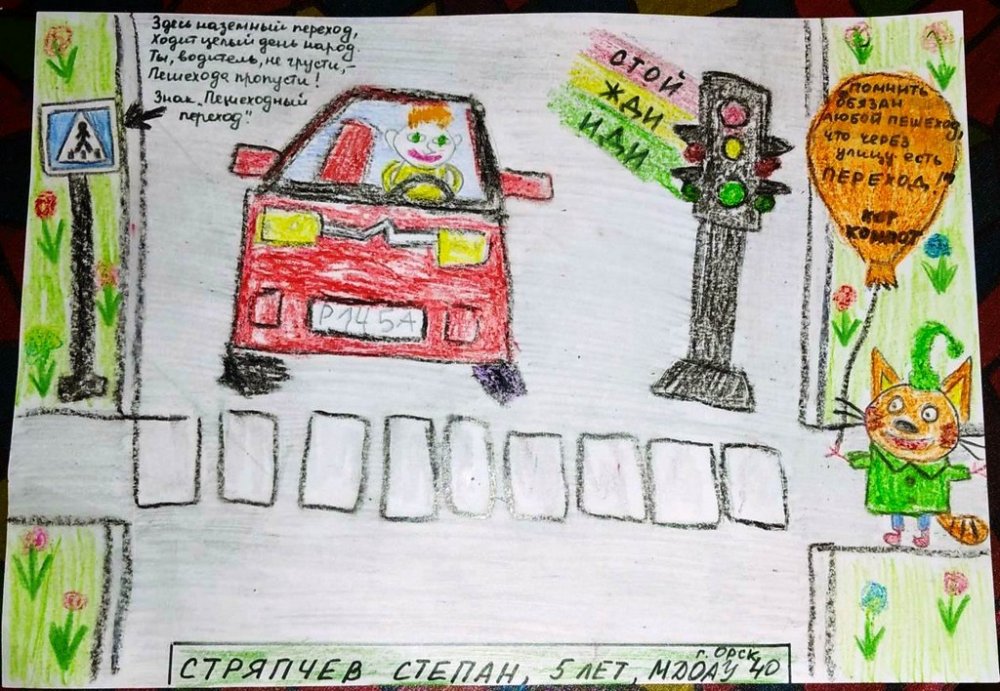 Здесь наземный переход,
Ходит целый день народ.
Ты, водитель, не грусти,–
Пешехода пропусти!
Знак „Пешеходный
переход”
СТОЙ
ЖДИ
ИДИ
ПОМНИТЬ
ОБЯЗАН
ЛЮБОЙ ПЕШЕХОД,
что через
улицу есть
ПЕРЕХОД!"
КОТ
КОМПОТ
Р145А
г. ОРСК
СТРЯПЧЕВ СТЕПАН, 5 ЛЕТ, МДОАУ 40